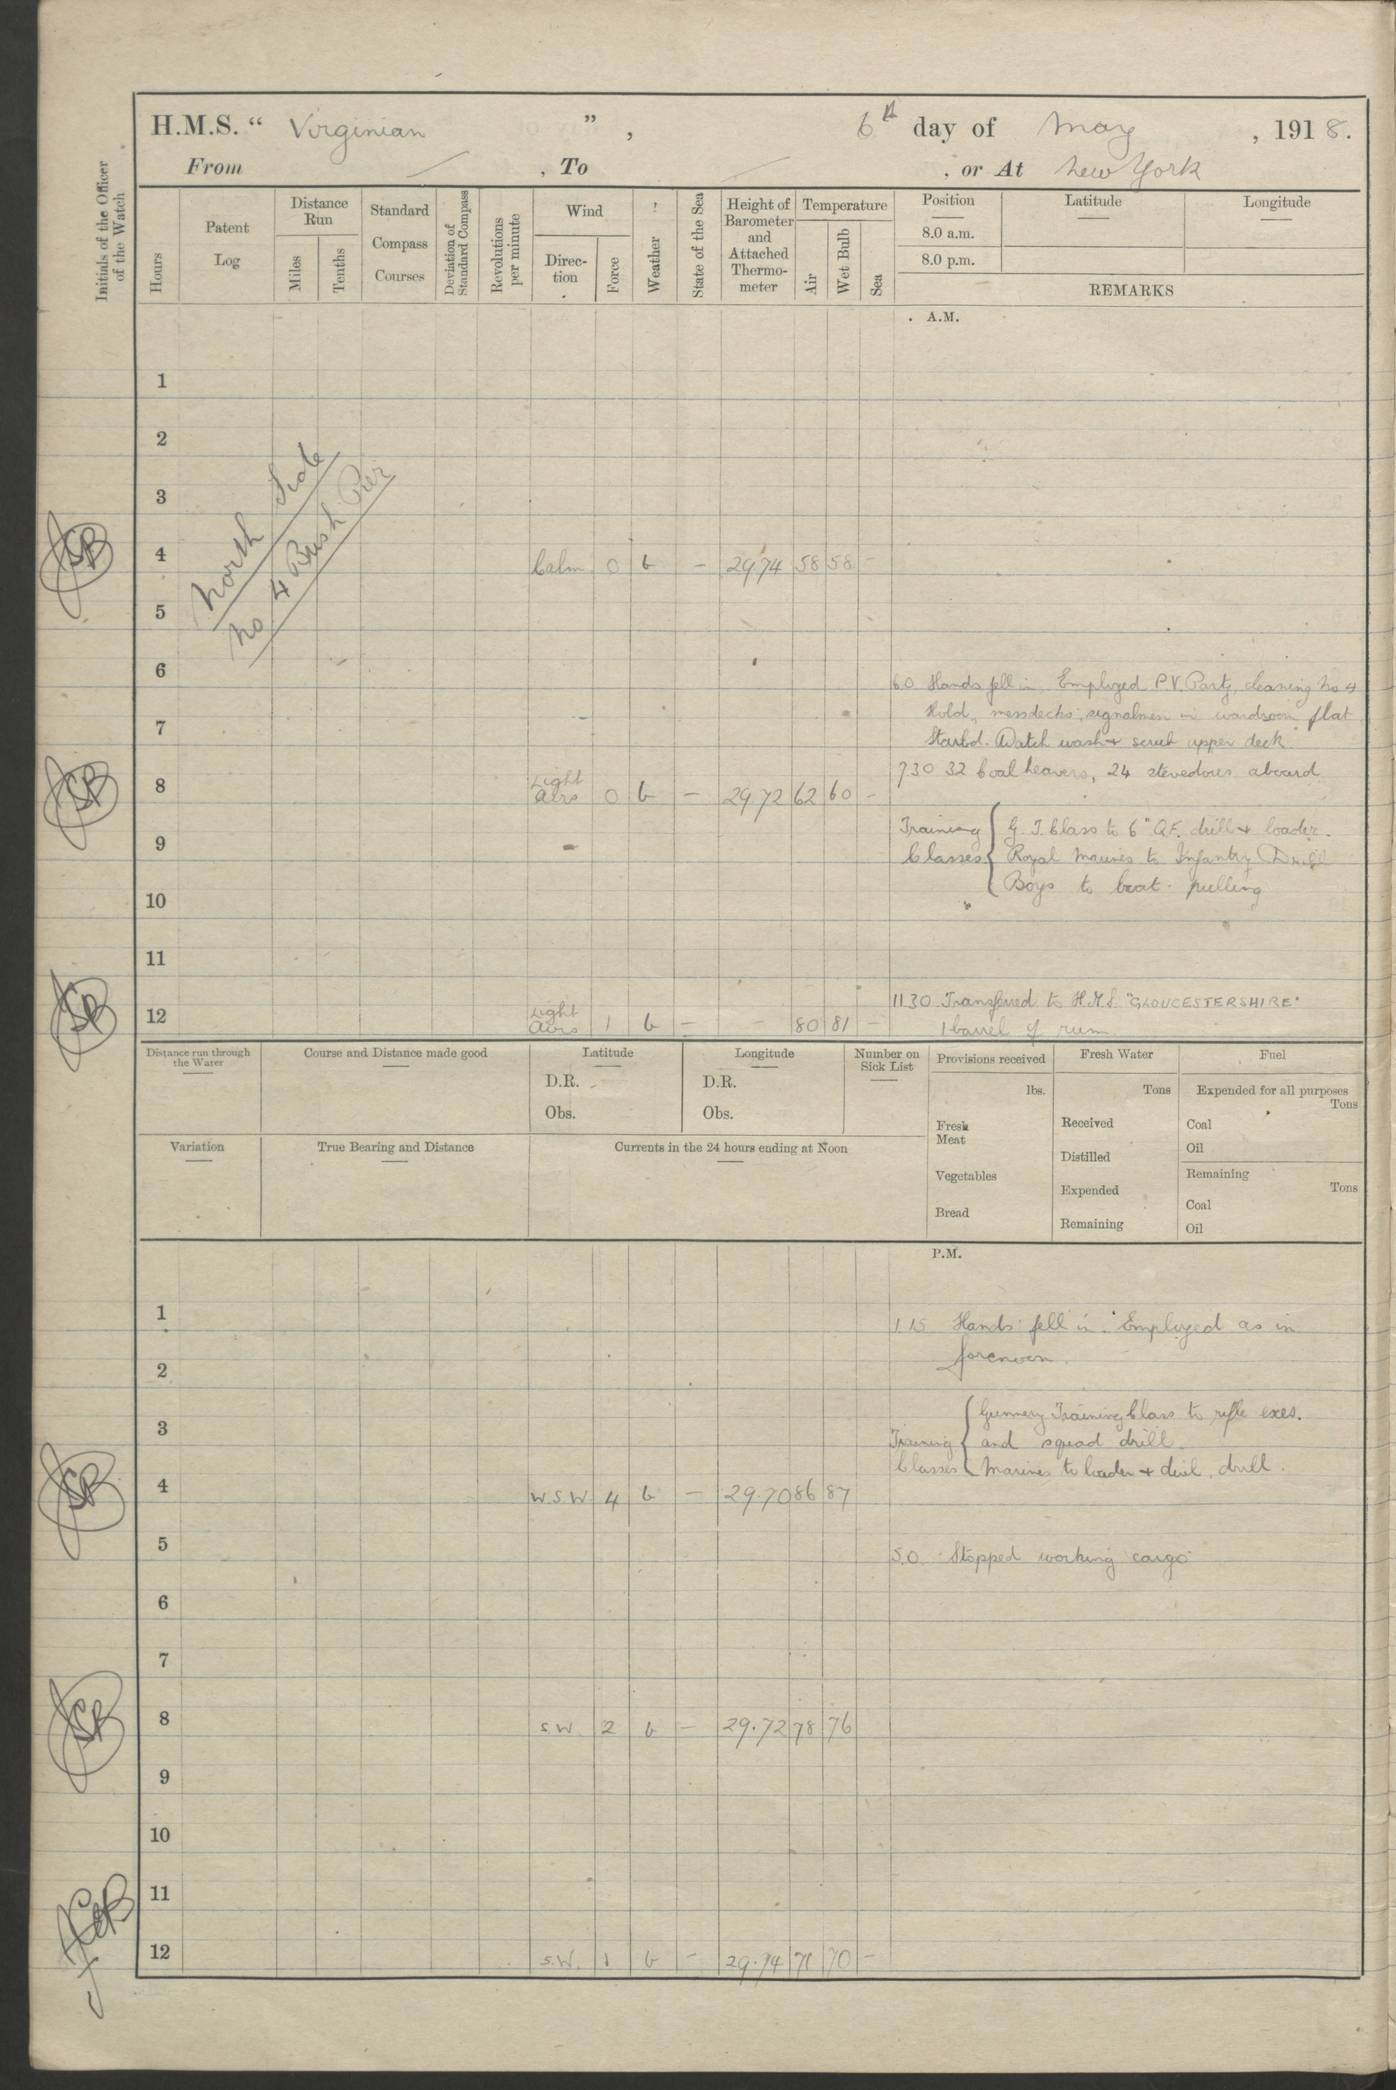 H.M.S. " Virginian ", 6th day of May, 1918.
From — , To — , or At New York
Initials of the Officer of the Watch
Hours
Patent Log
Distance Run
Miles
Tenths
Standard Compass Courses
Deviation of Standard Compass
Revolutions per minute
Wind
Direction
Force
Weather
State of the Sea
Height of Barometer and Attached Thermometer
Temperature
Air
Wet Bulb
Sea
Position
8.0 a.m.
8.0 p.m.
Latitude
Longitude
REMARKS
A.M.
1
2
3
North Side
No 4 Bush Pier
4 Calm 0 b - 29.74 58 58 -
5
6
6.0 Hands fell in. Employed P.V. Party, cleaning No 4
Hold, messdecks, signalmen in wardroom flat
7
Starbd. Watch wash & scrub upper deck
7.30 32 Coal heavers, 24 stevedores aboard
8 Light Airs 0 b - 29.72 62 60 -
9
Training Classes { G.T. Class to 6" Q.F. drill & loader.
Royal Marines to Infantry Drill
Boys to boat pulling
10
11
11.30 Transferred to H.M.S. "GLOUCESTERSHIRE"
1 barrel of rum
12 Light Airs 1 b - - 80 81 -
Distance run through the Water
Course and Distance made good
Latitude
D.R.
Obs.
Longitude
D.R.
Obs.
Number on Sick List
Provisions received
lbs.
Fresh Meat
Vegetables
Bread
Fresh Water
Tons
Received
Distilled
Expended
Remaining
Fuel
Expended for all purposes
Tons
Coal
Oil
Remaining
Tons
Coal
Oil
Variation
True Bearing and Distance
Currents in the 24 hours ending at Noon
P.M.
1
1.15 Hands fell in. Employed as in
forenoon.
2
3
Training Classes { Gunnery Training Class to rifle exes.
and squad drill.
Marines to loader & divl. drill.
4 W.S.W 4 b - 29.70 86 87
5
5.0 Stopped working cargo
6
7
8 S.W. 2 b - 29.72 78 76
9
10
11
12 S.W. 1 b - 29.74 71 70 -